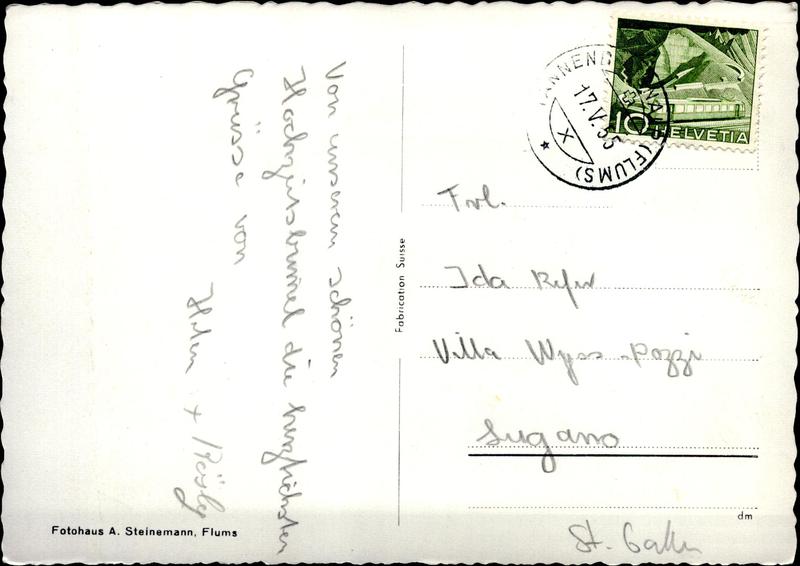 Von unserem schönen
Hochzeitsbummel die herzlichsten
Grüsse von
+ Rösly
Fotohaus A. Steinemann, Flums
Fabrication Suisse
17.V.55
X
(FLUMS)
10
HELVETIA
Frl.
Ida
Villa Wyss-Pozzi
Lugano
dm
St. Gallen